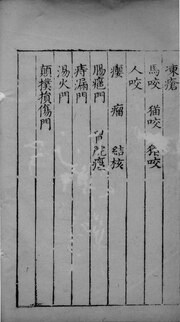 凍瘡
馬咬 猫咬 䑕咬
人咬
癭 瘤 結核
腸癰門
痔漏門
湯火門
顛撲損傷門